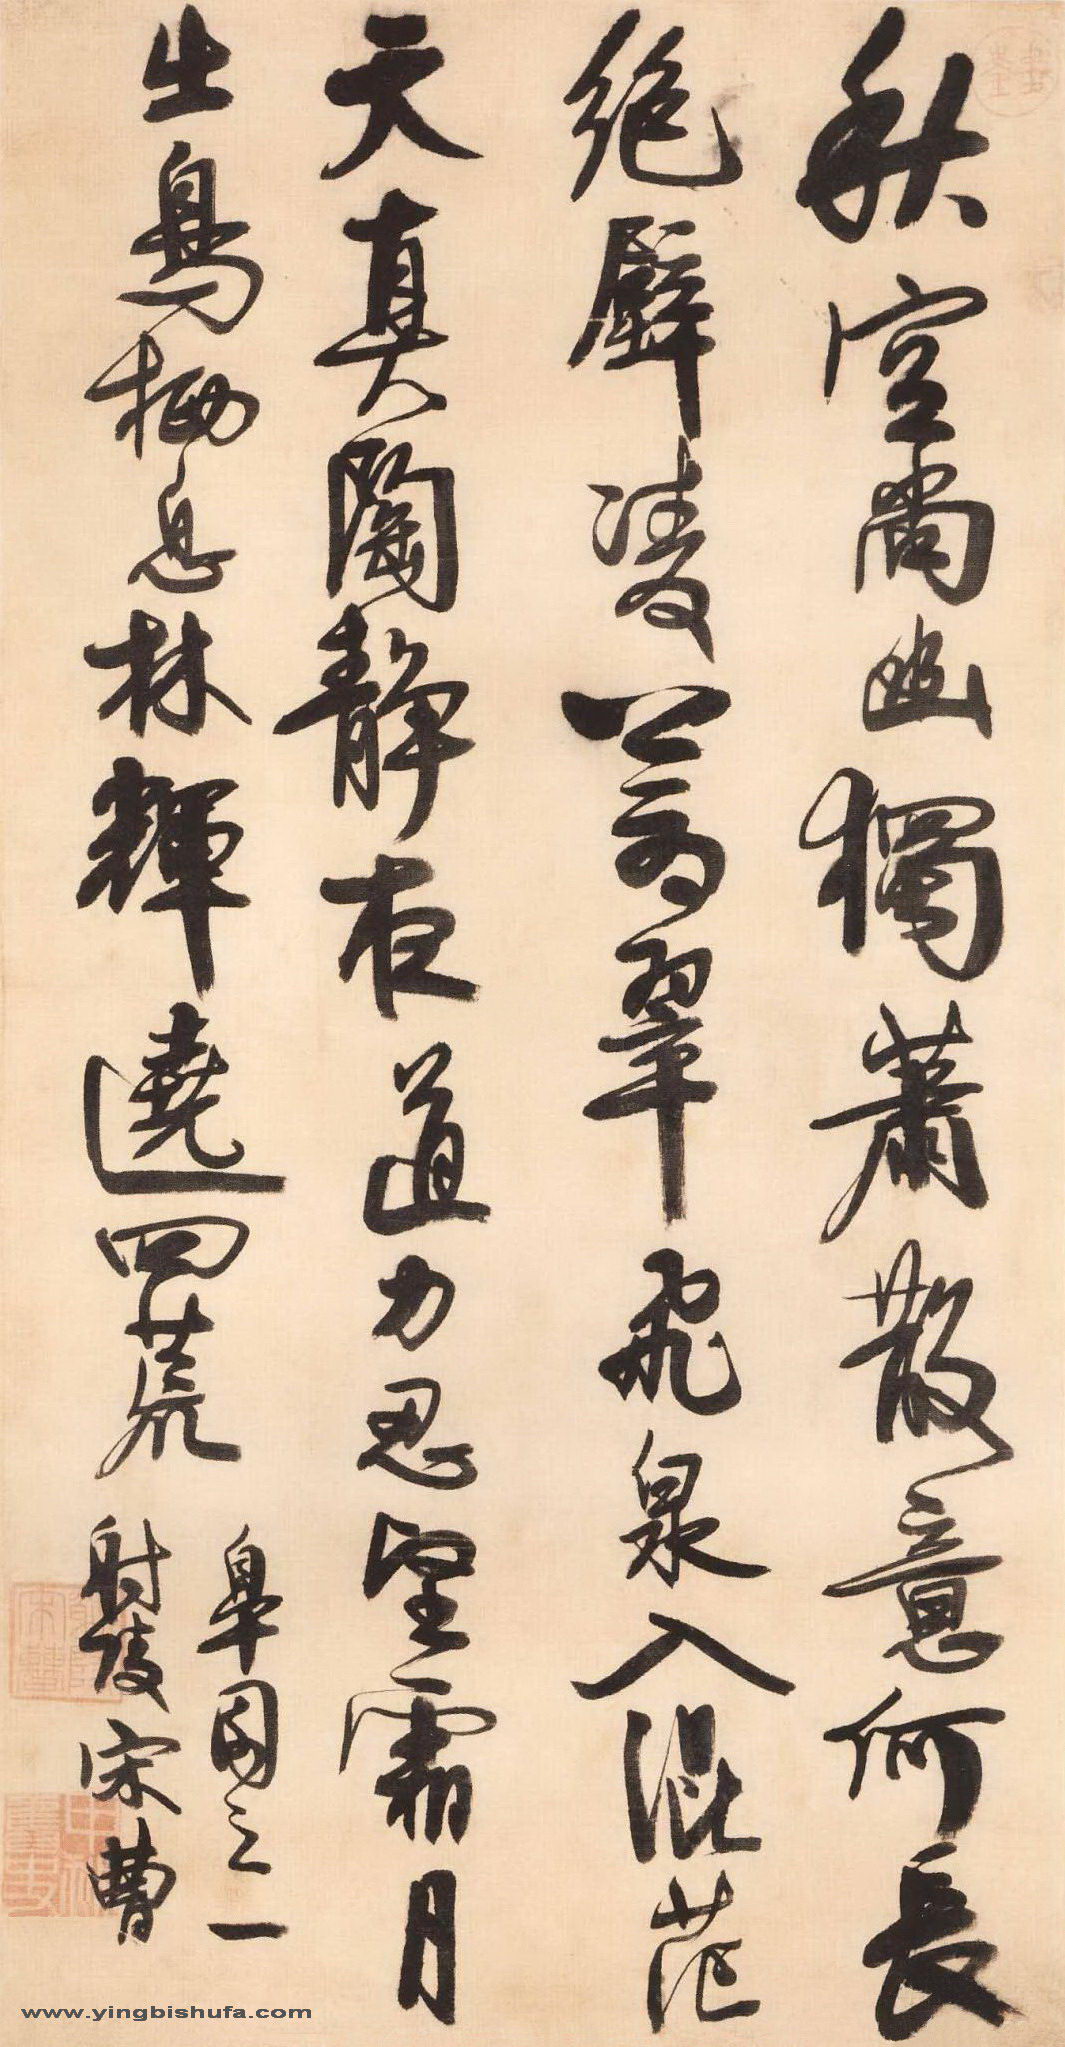 秋空尚幽獨蕭散意何長
絕壁凌公高翠飛泉入混茫
天真陶靜夜道力忍望霜月
生鳥栖息林輝遶四荒
皋園之一
射陵宋曹
www.yingbishufa.com